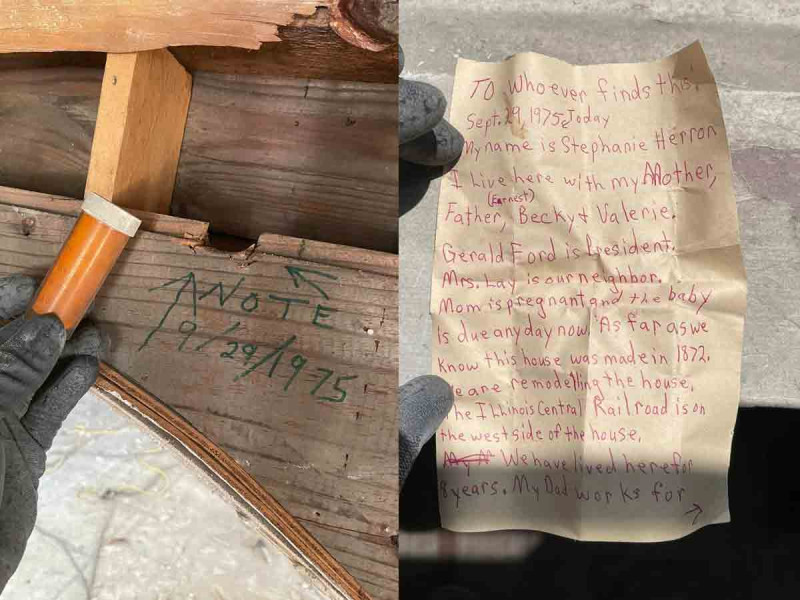 A NOTE
9/29/1975
TO. Whoever finds this.
Sept. 29, 1975 Today
My name is Stephanie Herron
I Live here with my Mother,
(Earnest)
Father, Becky & Valerie.
Gerald Ford is President.
Mrs. Lay is our neighbor.
Mom is pregnant and the baby
Is due any day now. As far as we
know this house was made in 1872.
We are remodelling the house.
The Illinois Central Railroad is on
the west side of the house.
We have lived here for
8 years. My Dad works for